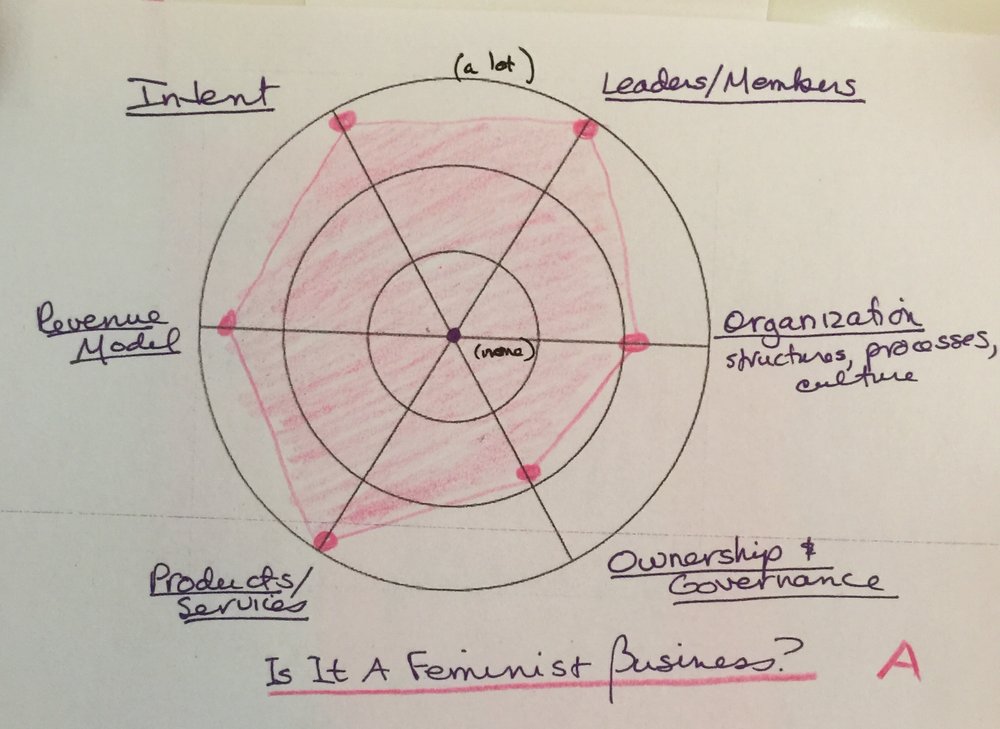 (a lot)
Intent
Leaders/Members
Revenue
Model
(none)
Organization
structures, processes,
culture
Products/
Services
Ownership &
Governance
Is It A Feminist Business?
A